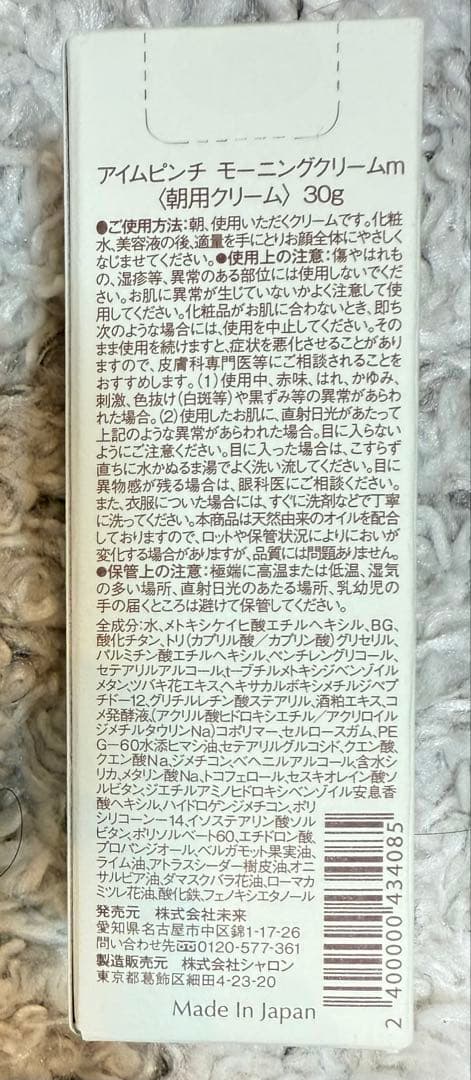 アイムピンチ モーニングクリームm
〈朝用クリーム〉 30g
●ご使用方法:朝、使用いただくクリームです。化粧
水、美容液の後、適量を手にとりお顔全体にやさしく
なじませてください。●使用上の注意:傷やはれも
の、湿疹等、異常のある部位には使用しないでくだ
さい。お肌に異常が生じていないかよく注意して使
用してください。化粧品がお肌に合わないとき、即ち
次のような場合には、使用を中止してください。その
まま使用を続けますと、症状を悪化させることがあり
ますので、皮膚科専門医等にご相談されることを
おすすめします。(1)使用中、赤味、はれ、かゆみ、
刺激、色抜け(白斑等)や黒ずみ等の異常があらわ
れた場合。(2)使用したお肌に、直射日光があたって
上記のような異常があらわれた場合。目に入らない
ようにご注意ください。目に入った場合は、こすらず
直ちに水かぬるま湯でよく洗い流してください。目に
異物感が残る場合は、眼科医にご相談ください。
また、衣服についた場合には、すぐに洗剤などで丁寧
に洗ってください。本商品は天然由来のオイルを配合
しておりますので、ロットや保管状況によりにおいが
変化する場合がありますが、品質には問題ありません。
●保管上の注意:極端に高温または低温、湿気
の多い場所、直射日光のあたる場所、乳幼児の
手の届くところは避けて保管してください。
全成分:水、メトキシケイヒ酸エチルヘキシル、BG、
酸化チタン、トリ(カプリル酸/カプリン酸)グリセリル、
パルミチン酸エチルヘキシル、ペンチレングリコール、
セテアリルアルコール、t-ブチルメトキシジベンゾイル
メタン、ツバキ花エキス、ヘキサカルボキシメチルジペプ
チド-12、グリチルレチン酸ステアリル、酒粕エキス、コ
メ発酵液、(アクリル酸ヒドロキシエチル/アクリロイル
ジメチルタウリンNa)コポリマー、セルロースガム、PE
G-60水添ヒマシ油、セテアリルグルコシド、クエン酸、
クエン酸Na、ジメチコン、ベヘニルアルコール、含水シ
リカ、メタリン酸Na、トコフェロール、セスキオレイン酸ソ
ルビタン、ジエチルアミノヒドロキシベンゾイル安息香
酸ヘキシル、ハイドロゲンジメチコン、ポリ
シリコーン-14、イソステアリン酸ソル
ビタン、ポリソルベート60、エチドロン酸、
プロパンジオール、ベルガモット果実油、
ライム油、アトラスシーダー樹皮油、オニ
サルビア油、ダマスクバラ花油、ローマカ
ミツレ花油、酸化鉄、フェノキシエタノール
発売元 株式会社未来
愛知県名古屋市中区錦1-17-26
問い合わせ先 0120-577-361
製造販売元 株式会社シャロン
東京都葛飾区細田4-23-20
Made In Japan
2 400000 434085